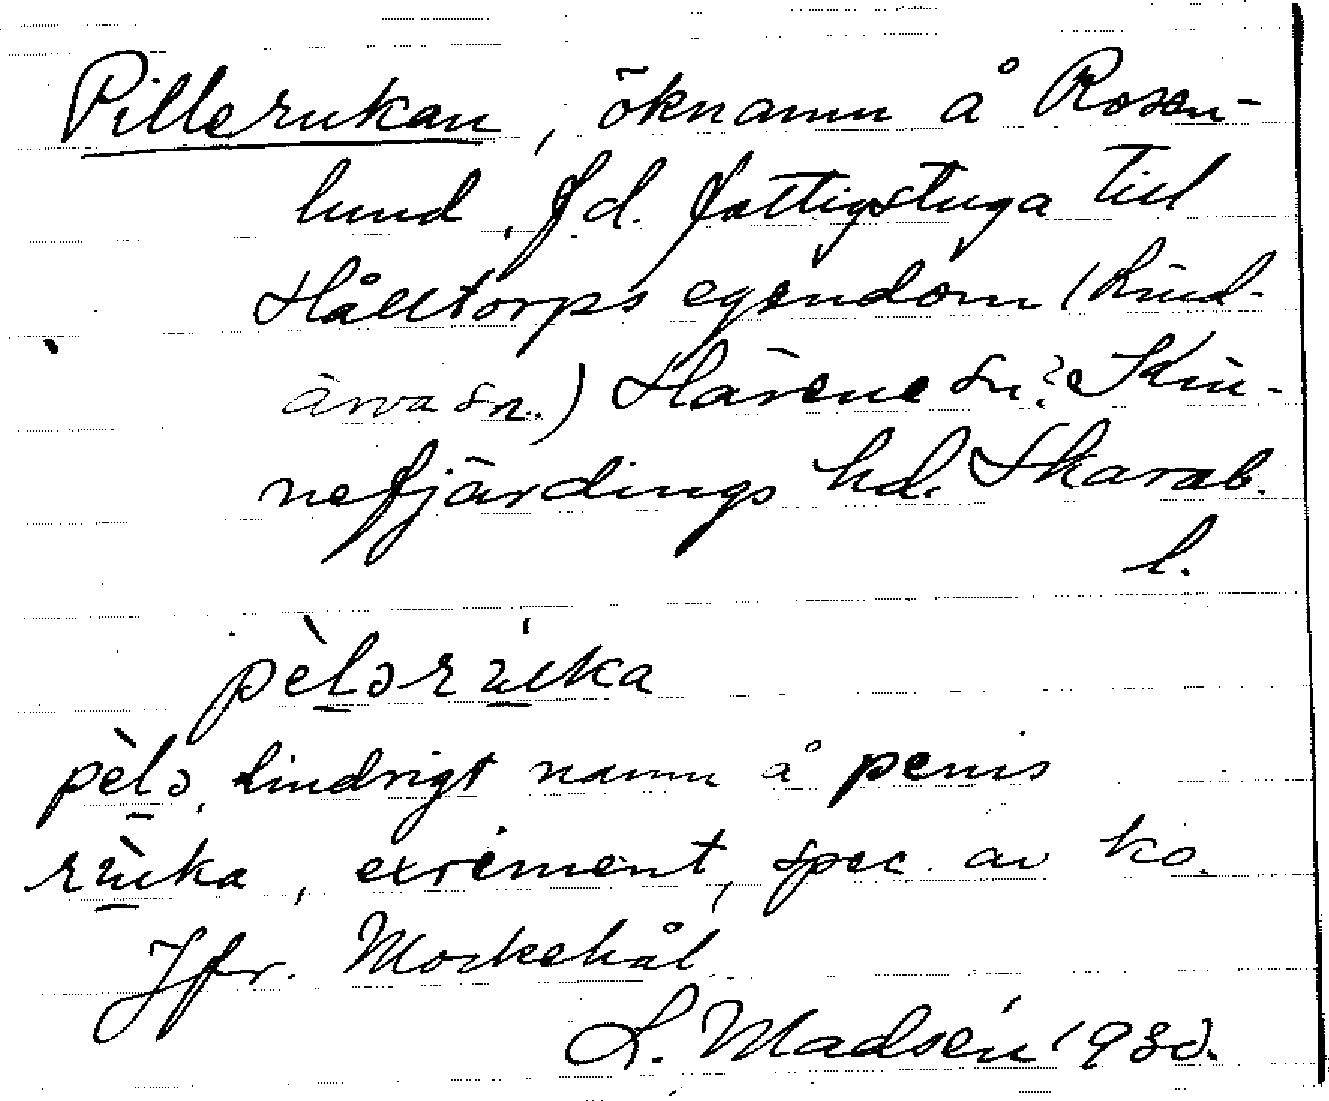 Pillerukan, öknamn å Rosen-
lund, f.d. fattigstuga till
Hålltorps egendom (Lind-
ärva sn.) Härene sn? Kin-
nefjärdings hd. Skarab.
l.
pèlərúka
pèlə, lindrigt namn å penis
rùka, exrement, spec. av ko.
Jfr. Mockehål
L. Madsén 1930.